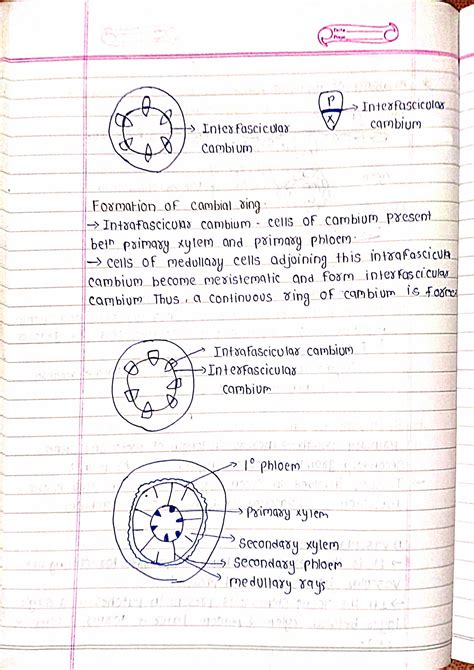 Date
Page
P
X
Interfascicular
cambium
Interfascicular
cambium
Formation of cambial ring
→ Intrafascicular cambium - cells of cambium present
betn primary xylem and primary phloem.
→ cells of medullary cells adjoining this intrafascicula
cambium become meristematic and form interfascicular
cambium Thus, a continuous ring of cambium is
Intrafascicular cambium
Interfascicular
cambium
1° phloem
Primary xylem
Secondary xylem
Secondary phloem
medullary rays